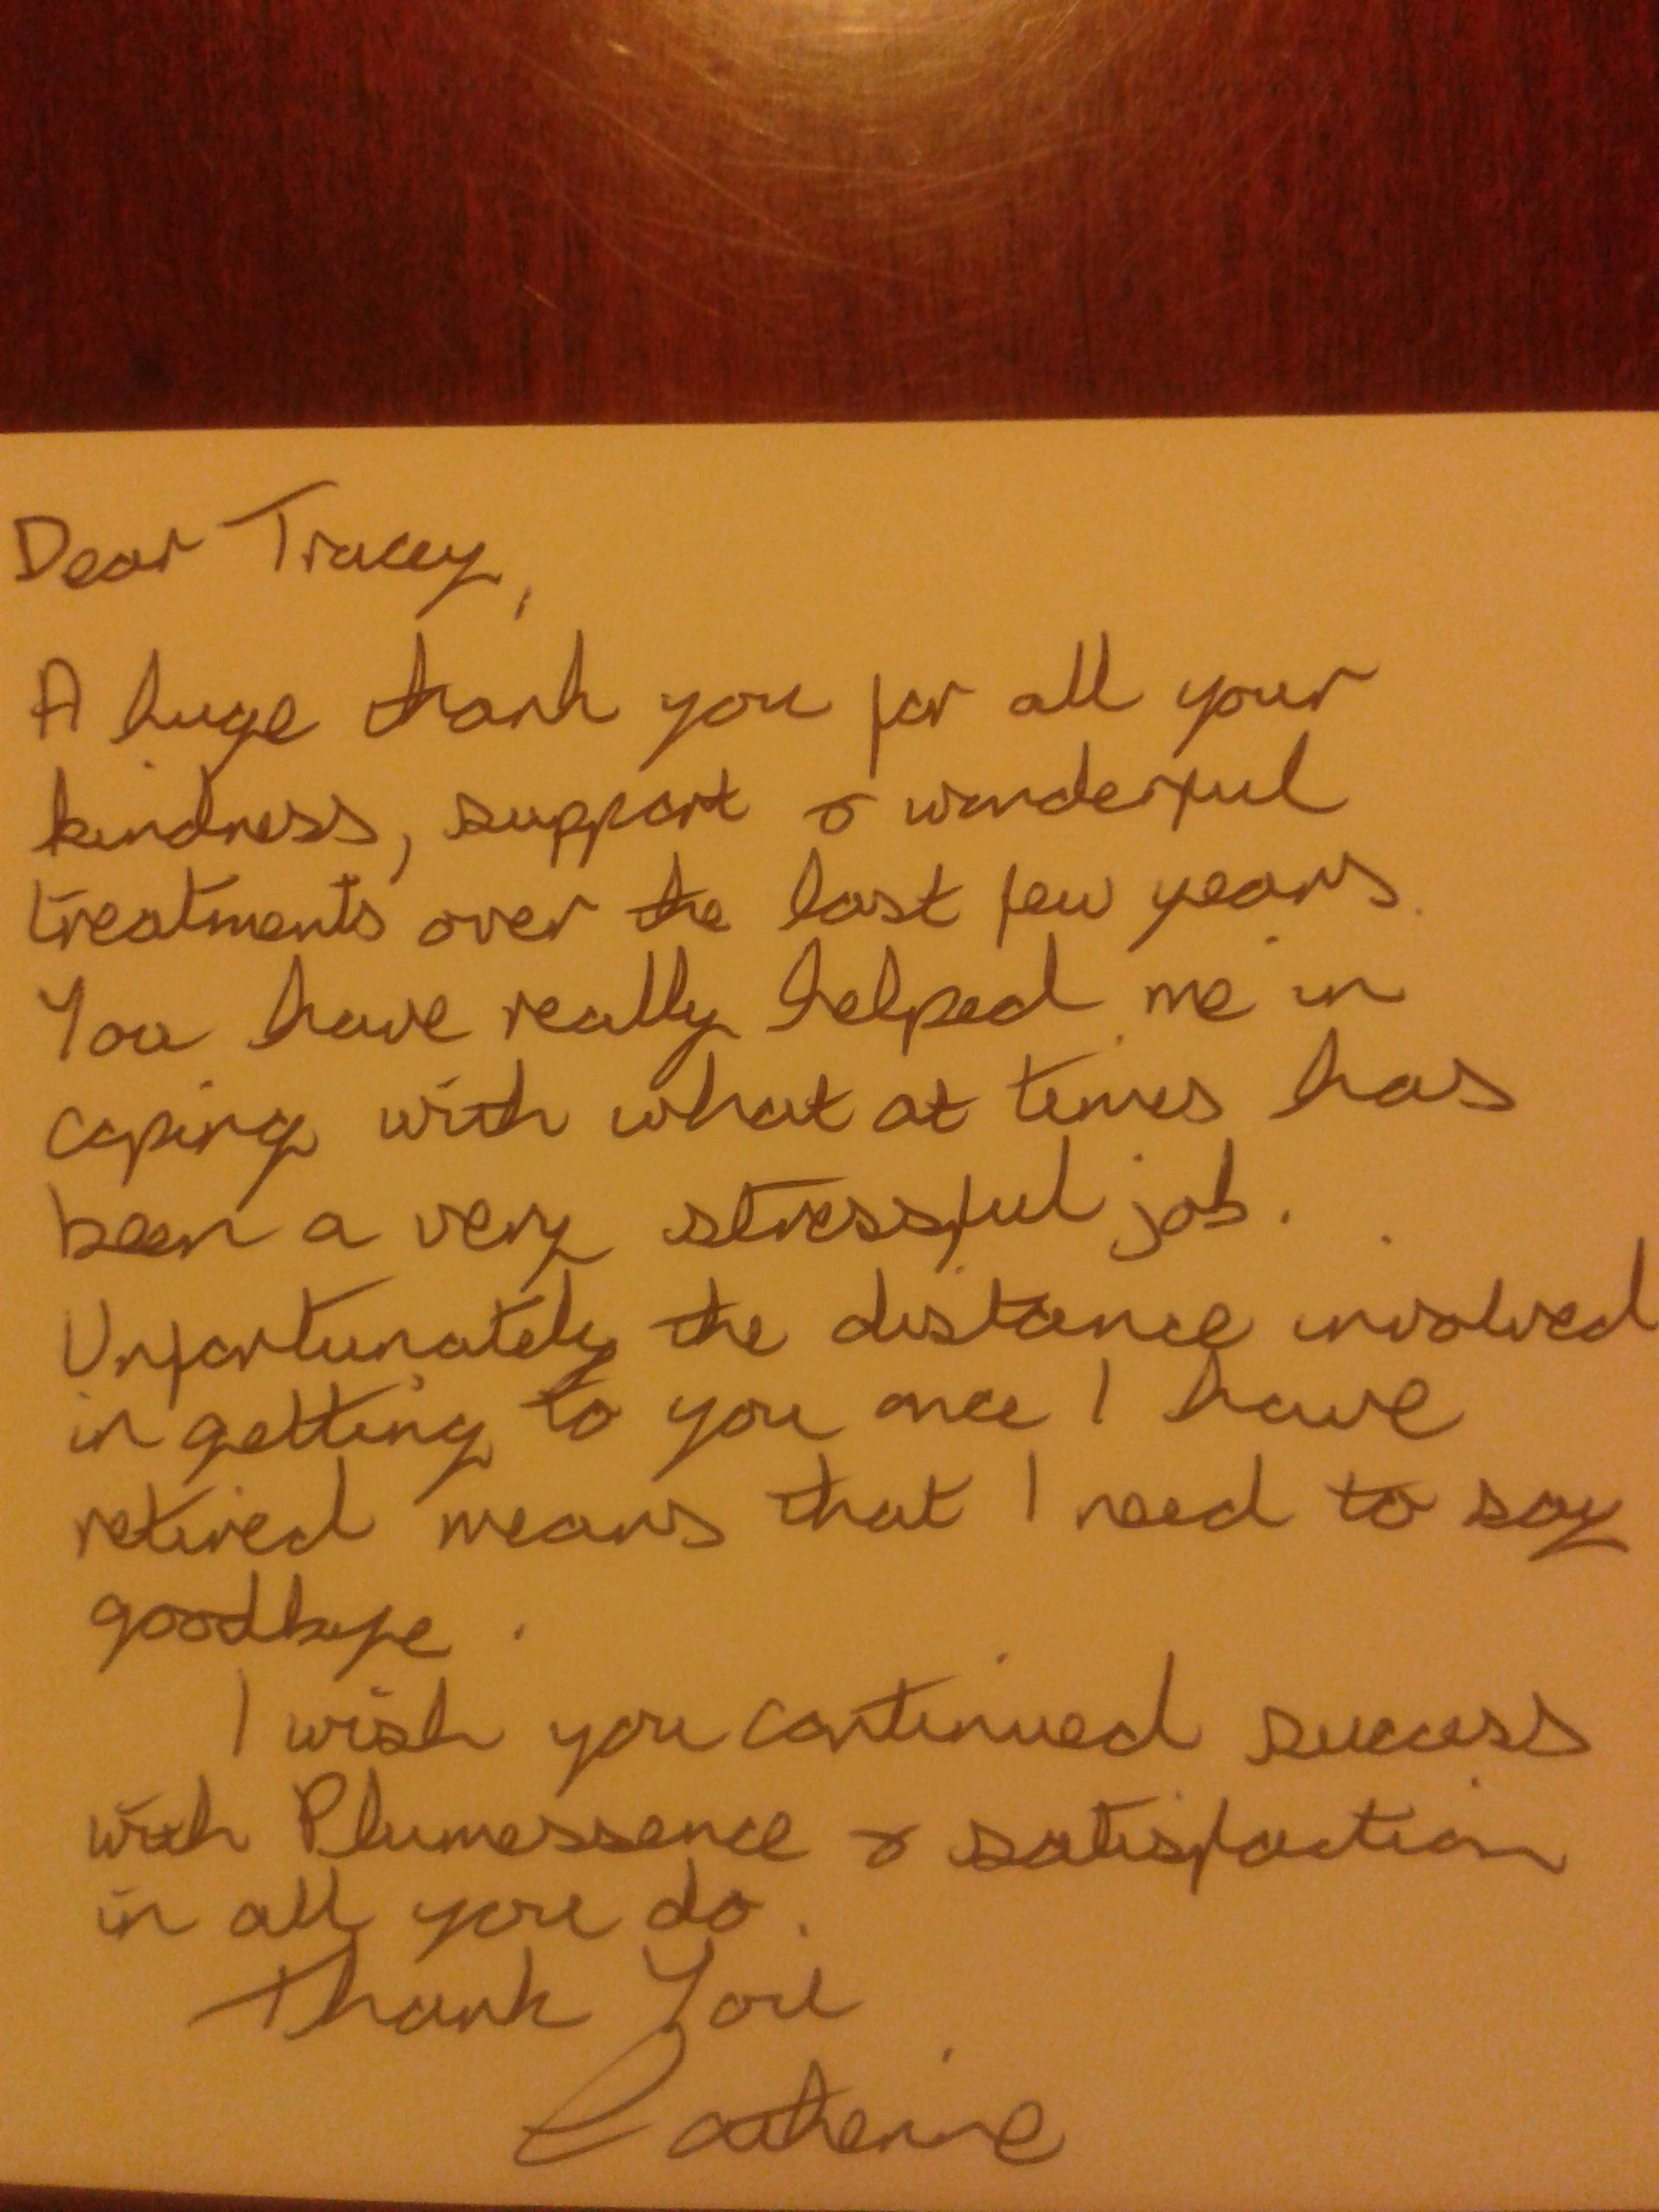 Dear Tracey,
A huge thank you for all your
kindness, support & wonderful
treatments over the last few years.
You have really helped me in
coping with what at times has
been a very stressful job.
Unfortunately the distance involved
in getting to you once I have
retired means that I need to say
goodbye.
I wish you continued success
with Plumessence & satisfaction
in all you do.
Thank You
Catherine